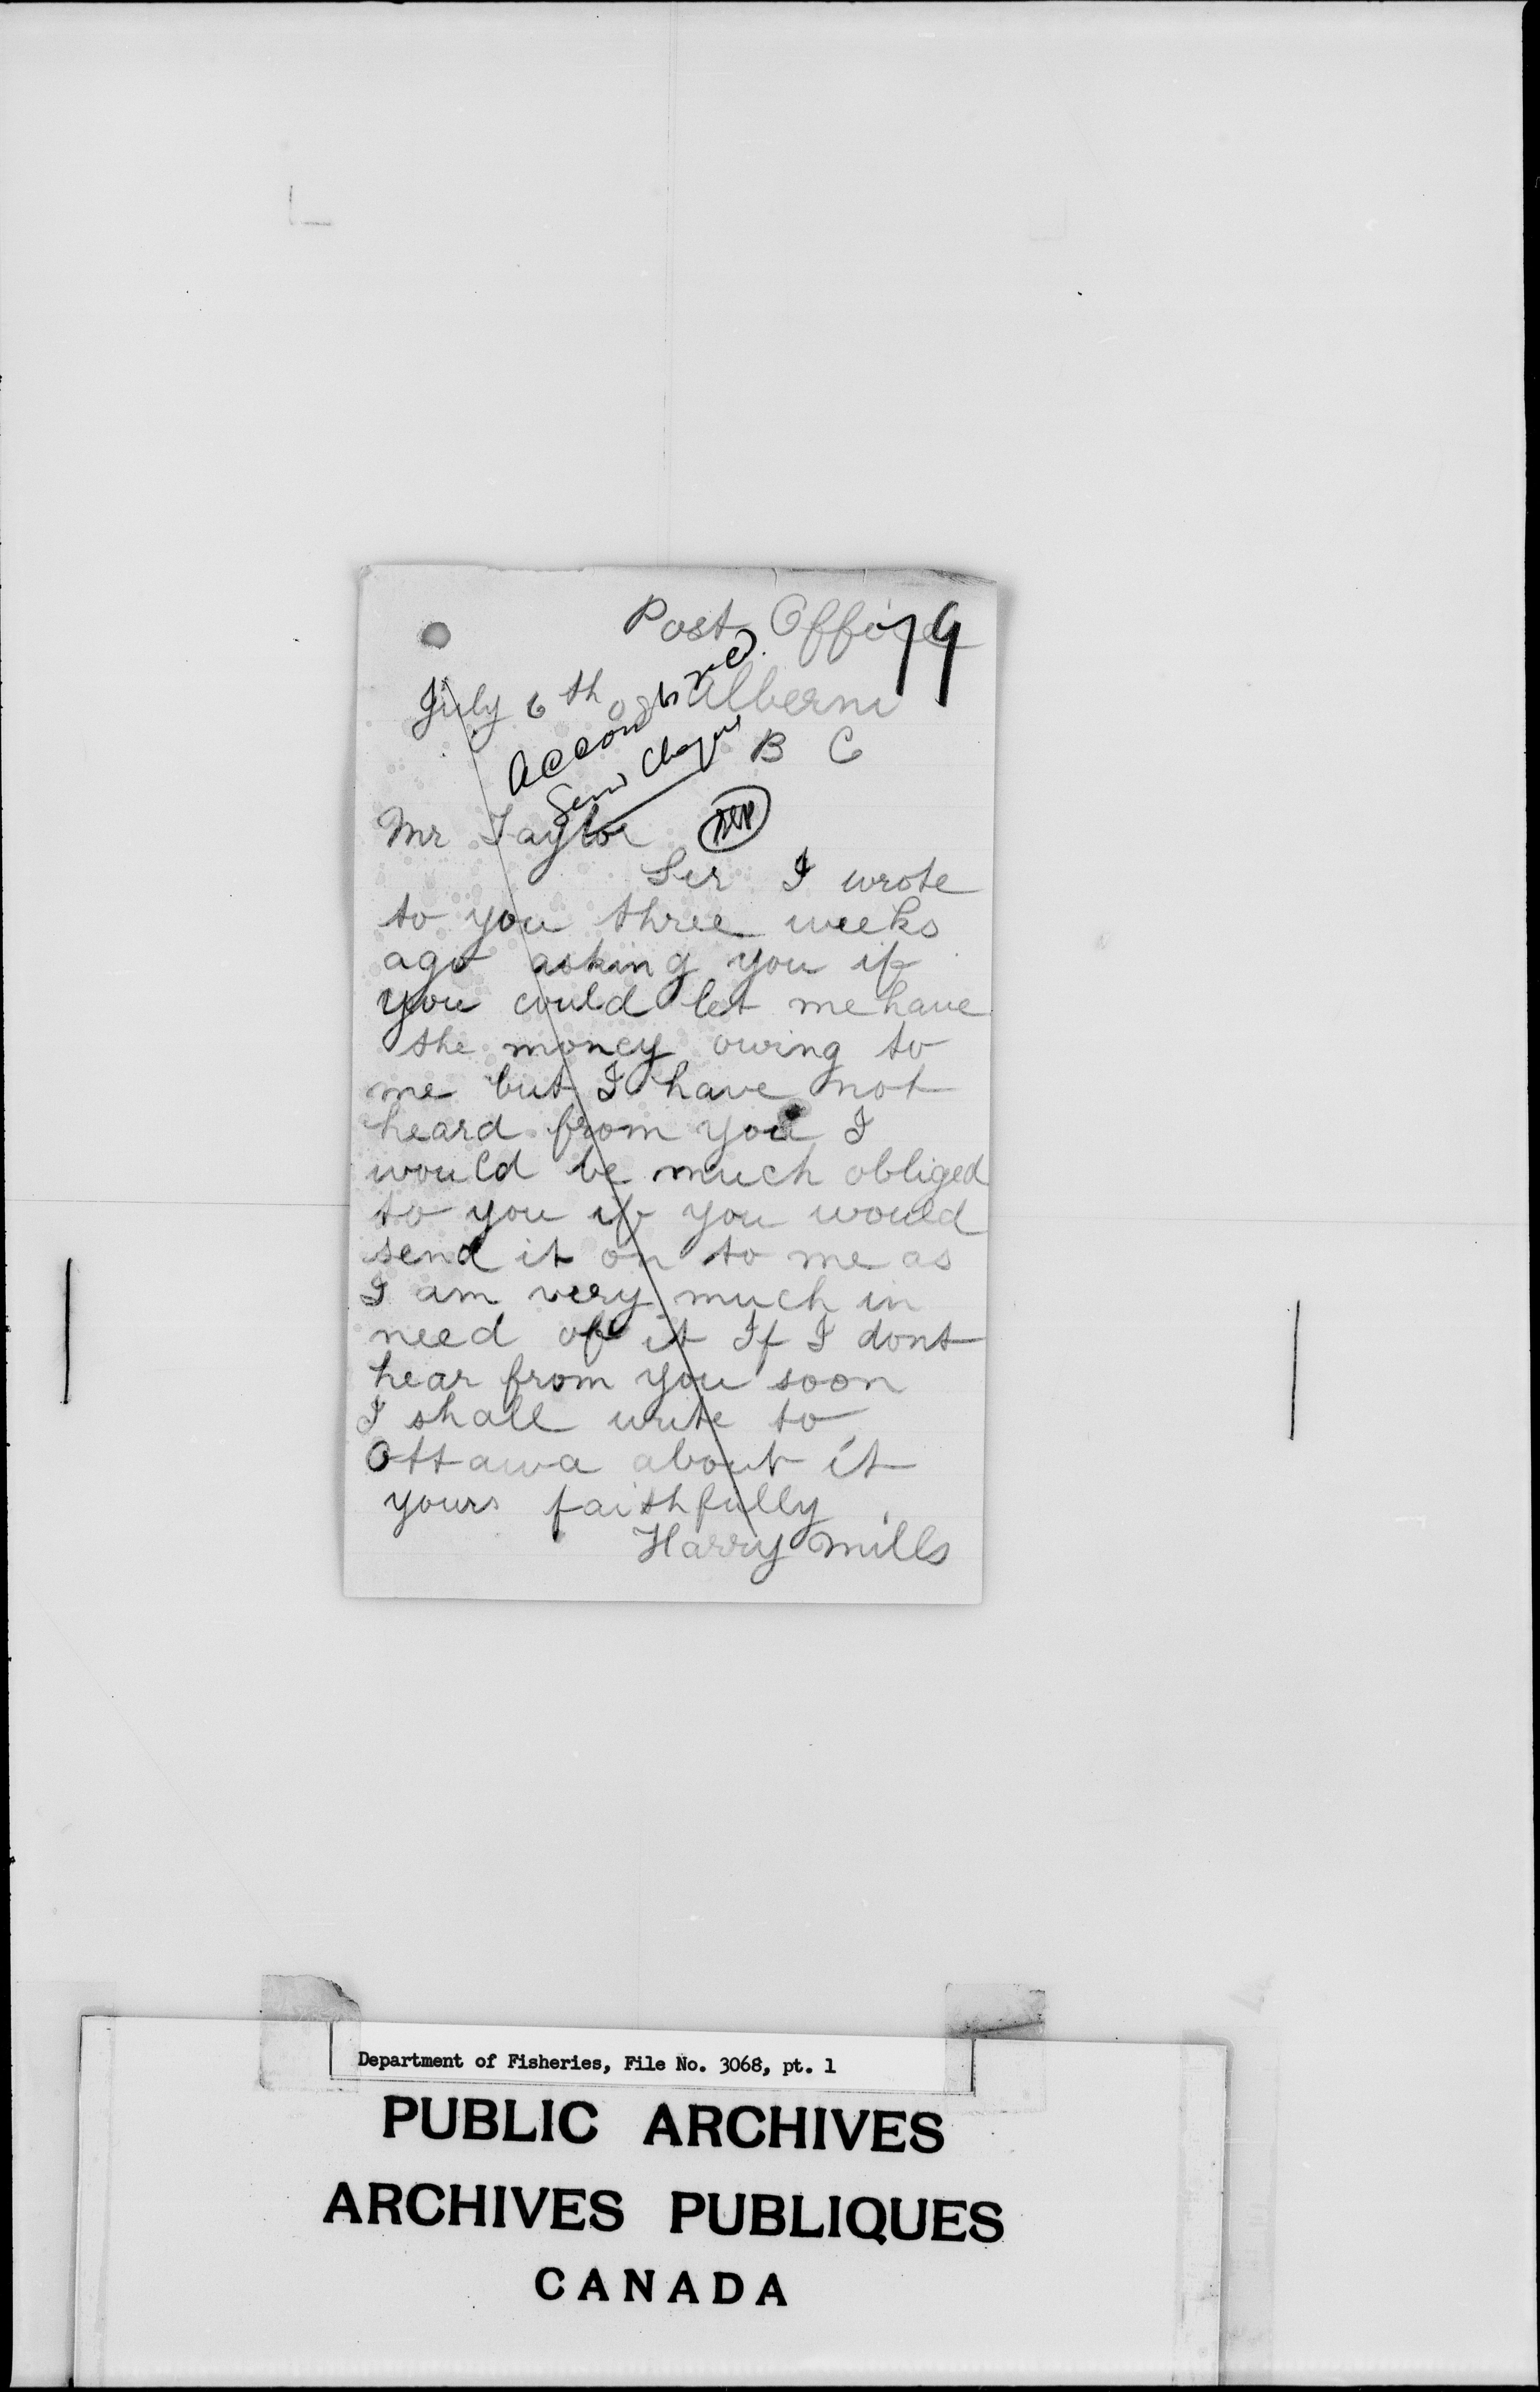 Post Office
79
July 6th
Alberni
B C
Mr Taylor
Sir I wrote
to you three weeks
ago asking you if
you could let me have
the money owing to
me but I have not
heard from you I
would be much obliged
to you if you would
send it on to me as
I am very much in
need of it If I dont
hear from you soon
I shall write to
Ottawa about it
yours faithfully
Harry Mills
Department of Fisheries, File No. 3068, pt. 1
PUBLIC ARCHIVES
ARCHIVES PUBLIQUES
CANADA